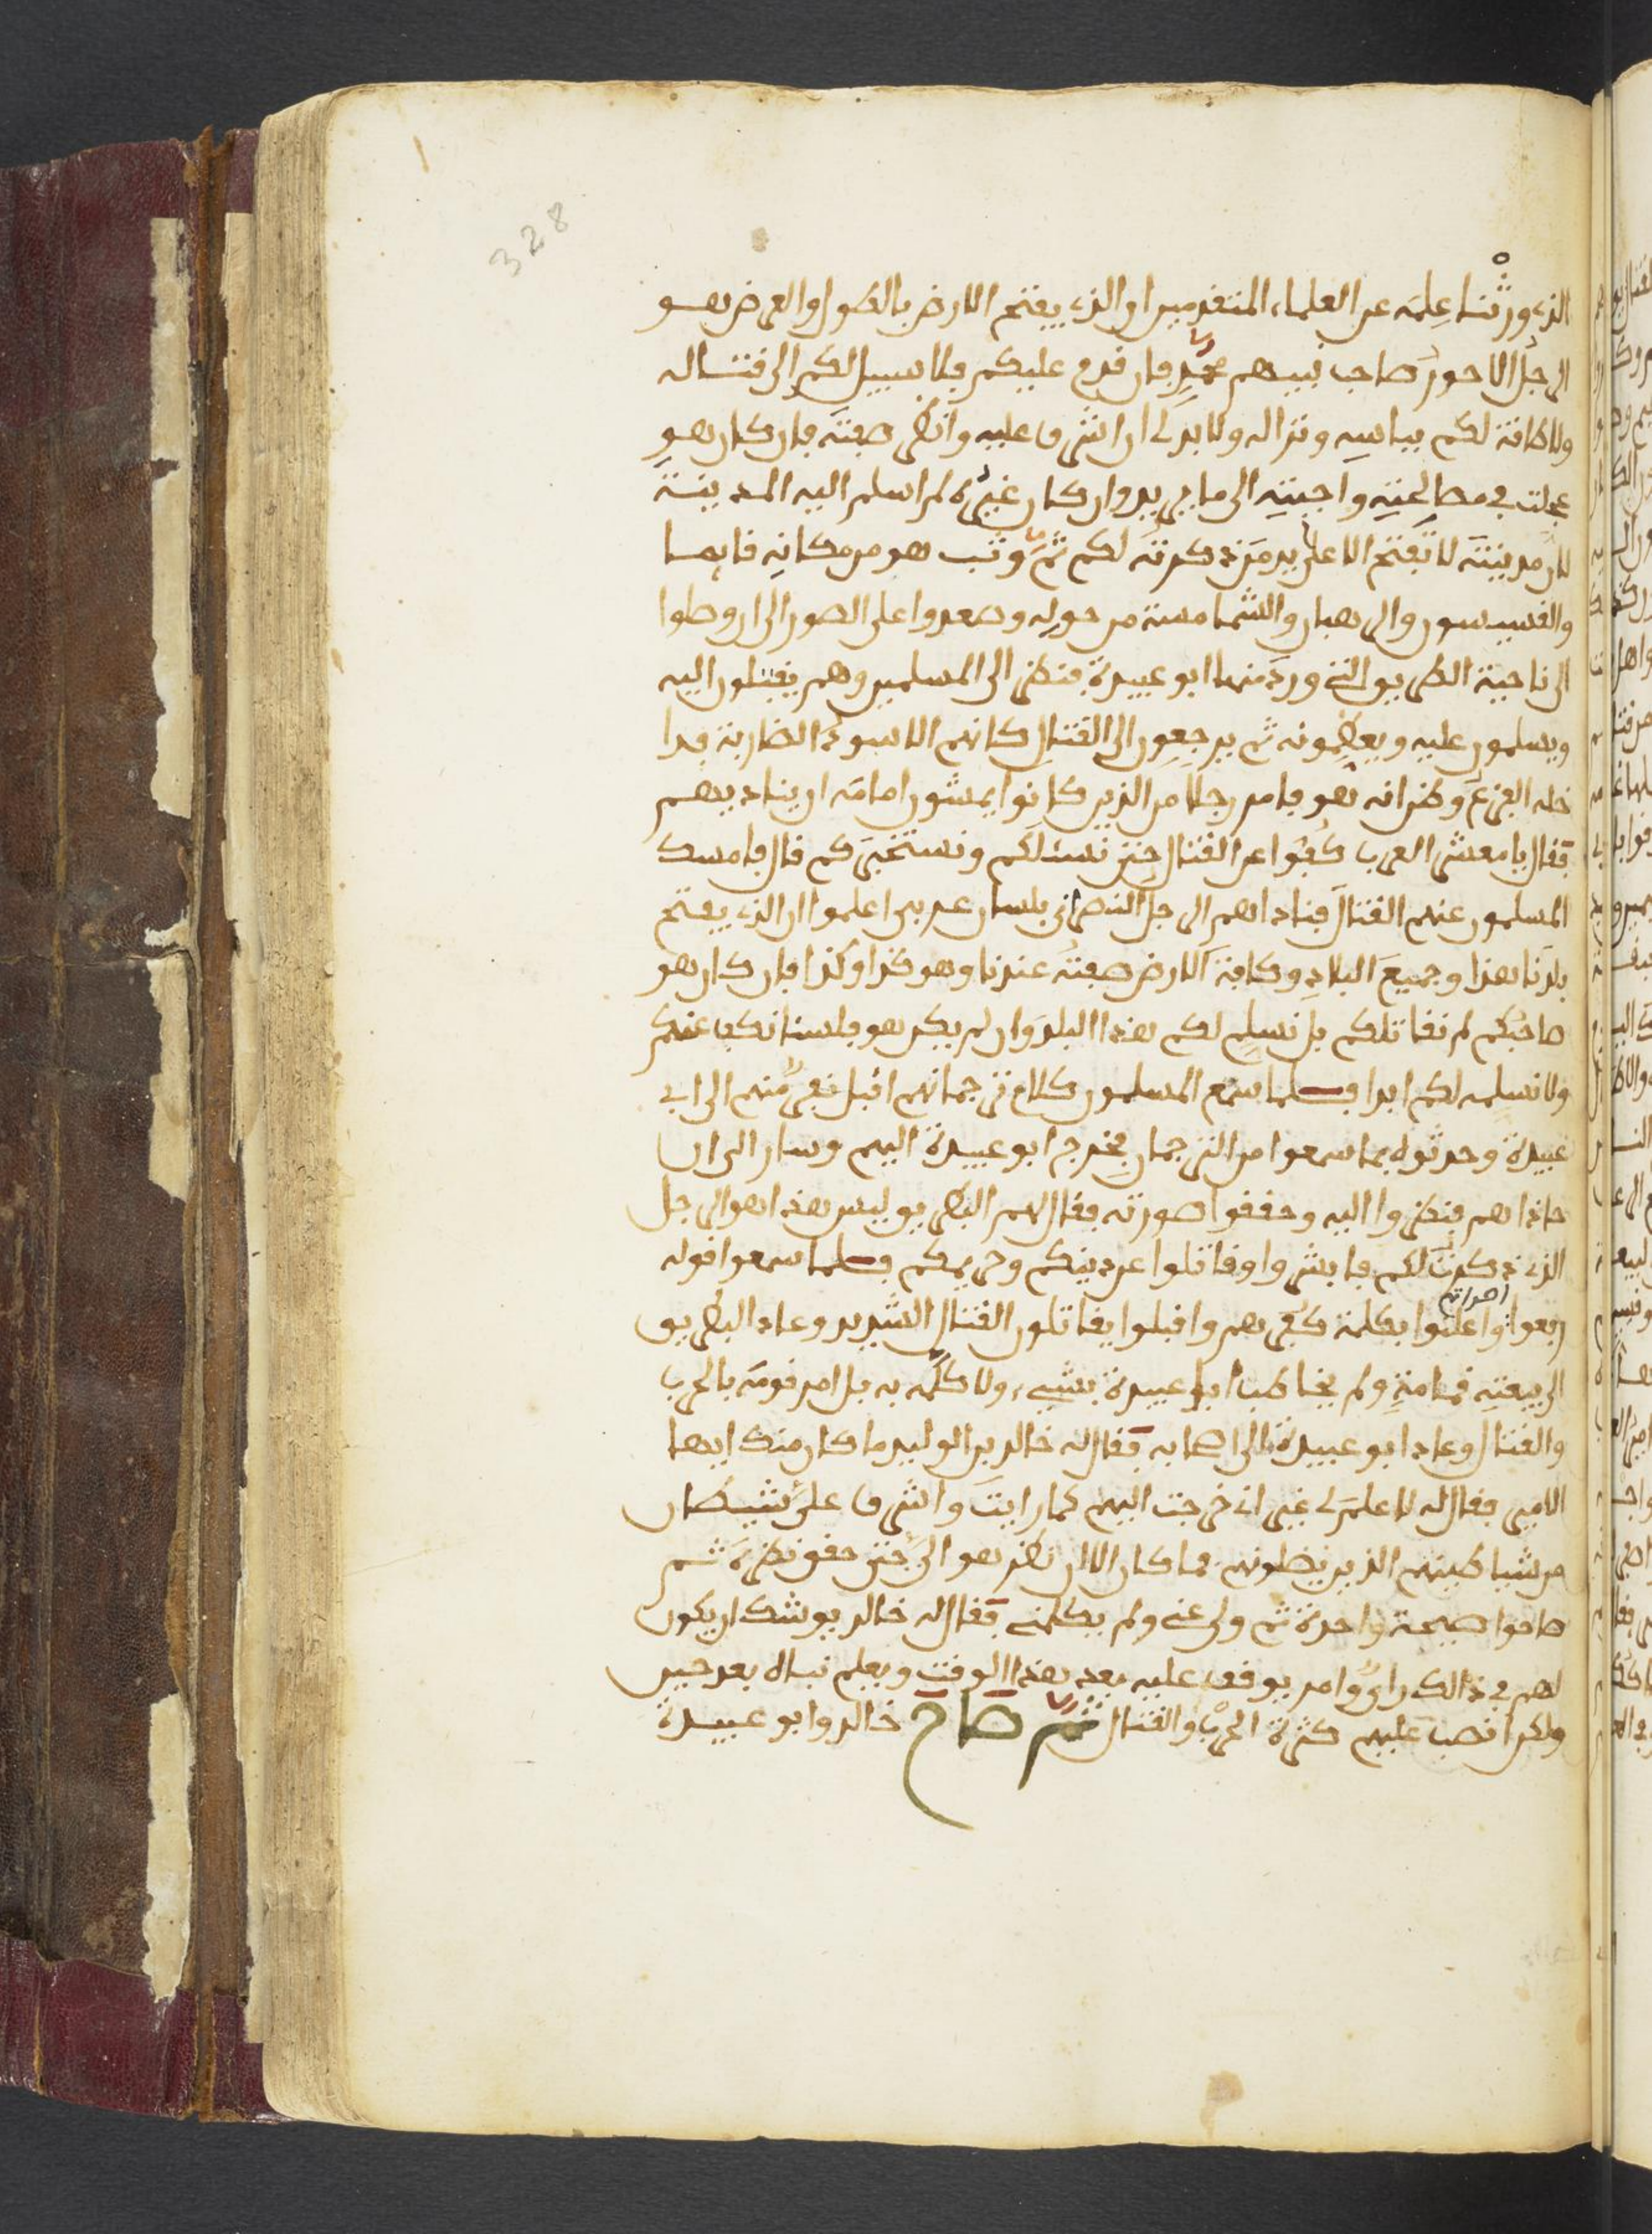 328
الذي ورثنا علمه عن العلماء المتقدمين ان الذي يفتح الارض بالطول والعرض هو
الرجل الاحور صاحب نبيهم محمد فان قدم عليكم فلا سبيل لكم الى قتاله
ولا طاقة لكم بباسه ونزاله ولا بد لي ان اشرف عليه وانظر صفته فان كان هو
عجلت في مصالحته واجبته الى ما يريد وان كان غيره لم اسلم اليه المدينة
لان مدينته لا تفتح الا على يد من ذكرته لكم ثم وثب هو من مكانه قايما
والقسيسون والرهبان والشمامسة من حوله وصعدوا على الصور الى ان وصلوا
الى ناحية الطريق التي ورد منها ابو عبيدة فنظر الى المسلمين وهم يقبلون اليه
ويسلمون عليه ويعظمونه ثم يرجعون الى القتال كانهم الاسود الضارية فدا
خله الفزع وظن انه هو فامر رجلا من الذين كانوا يمشون امامه ان يناديهم
فقال يا معشر العرب كفوا عن القتال حتى نسئلكم ونستخبركم قال فامسك
المسلمون عنهم القتال فناداهم الرجل النصراني بلسان عربي اعلموا ان الذي يفتح
بلدنا هذا وجميع البلاد وكافة الارض صفته عندنا وهو كذا وكذا فان كان هو
صاحبكم لم نقاتلكم بل نسلم لكم هذا البلد وان لم يكن هو فلسنا نكف عنكم
ولا نسلمه لكم ابدا فلما سمع المسلمون كلام ترجمانهم اقبل نفر منهم الى ابي
عبيدة وحدثوه بما سمعوا من الترجمان فخرج ابو عبيدة اليهم وسار الى ان
حاذاهم فنظروا اليه وحققوا صورته فقال لهم البطريق ليس هذا هو الرجل
الذي ذكرت لكم فابشروا وقاتلوا عن دينكم وحريمكم فلما سمعوا قوله
رفعوا اصواتهم واعلنوا بكلمة كفرهم واقبلوا يقاتلون القتال الشديد وعاد البطريق
الى بيعته قمامة ولم يخاطب ابا عبيدة بشيء ولا كلمه به بل امر قومه بالحرب
والقتال وعاد ابو عبيدة الى اصحابه فقال له خالد بن الوليد ما كان منك ايها
الامير فقال له لا علم لي غير اني خرجت اليهم كما رايت واشرف علي شيطان
من شياطينهم الذين يضلونهم فما كان الا ان نظر هو الي حتى حقق نظره ثم
صاحوا صيحة واحدة ثم ولى عني ولم يكلمني فقال له خالد يوشك ان يكون
لهم في ذالك راي وامر يوقف عليه بعد هذا الوقت ويعلم نباه بعد حين
ولكن انصب عليهم كثرة الحرب والقتال ثم صاح خالد وابو عبيدة